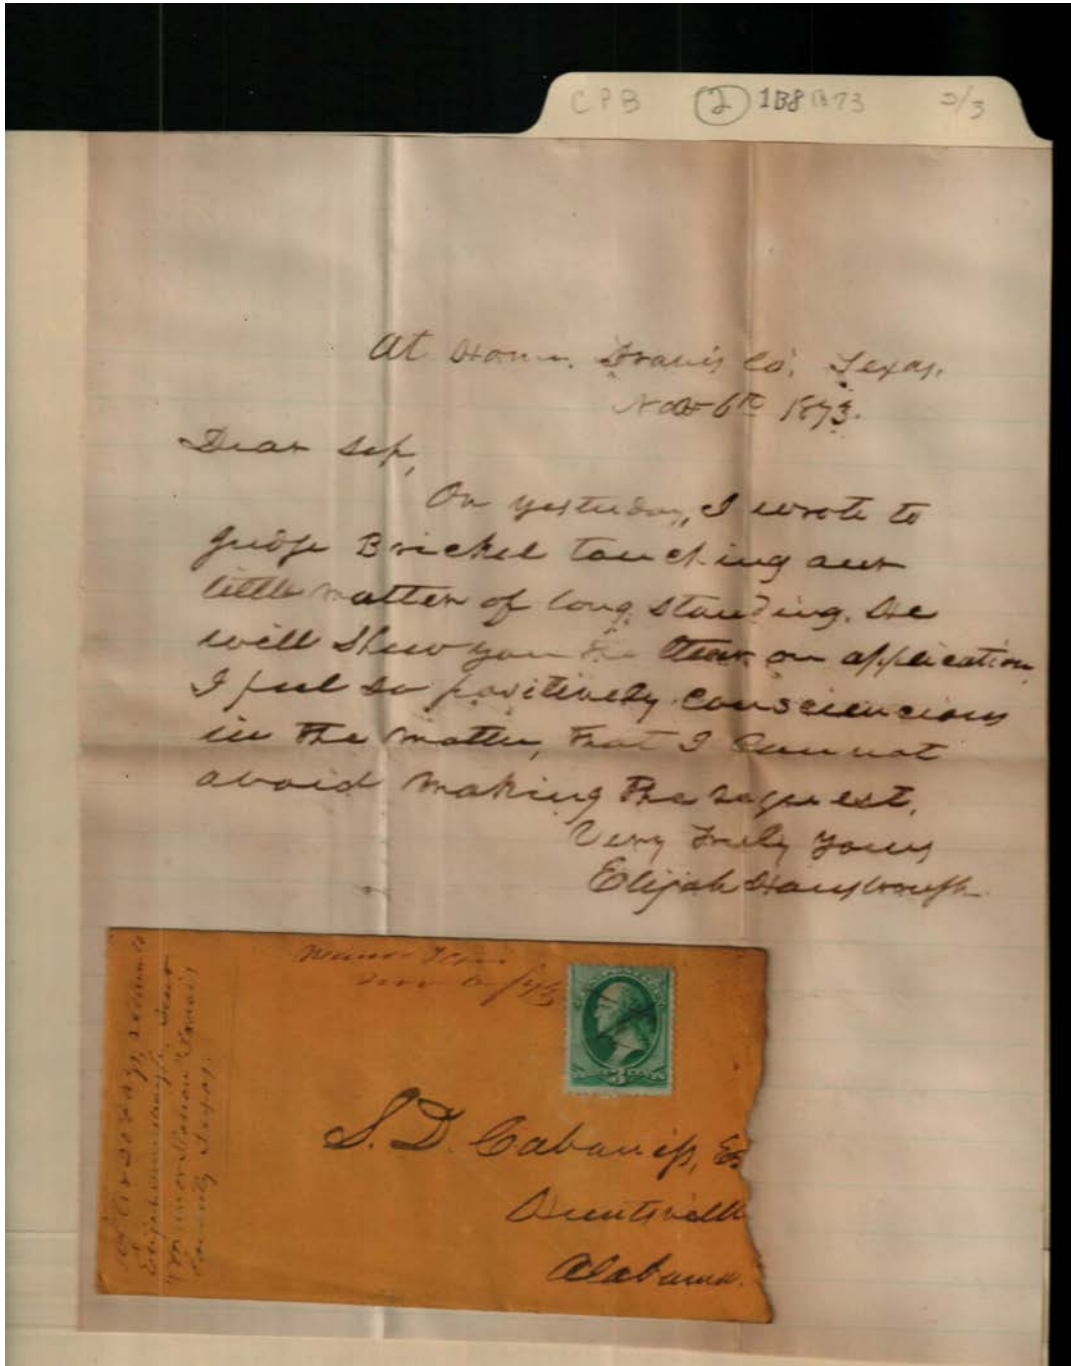 CPB (2) 1B8 1873 3/3
At Home. Travis Co. Texas.
Nov 6th 1873.
Dear Sep,
On yesterday, I wrote to
Judge Brickel touching our
little matter of long standing. He
will shew you the on application.
I feel so positively consciencious
in the matter, that I can not
avoid making the request.
Very Truly Yours
Elijah Hansbrough
Manor Texas
Nov 6/73
3
S. D. Cabaniss, Es
Huntsville
Alabama.
If not in 20 days, return to
Elijah Hansbrough, near
"Manor Station" Travis
County Texas.